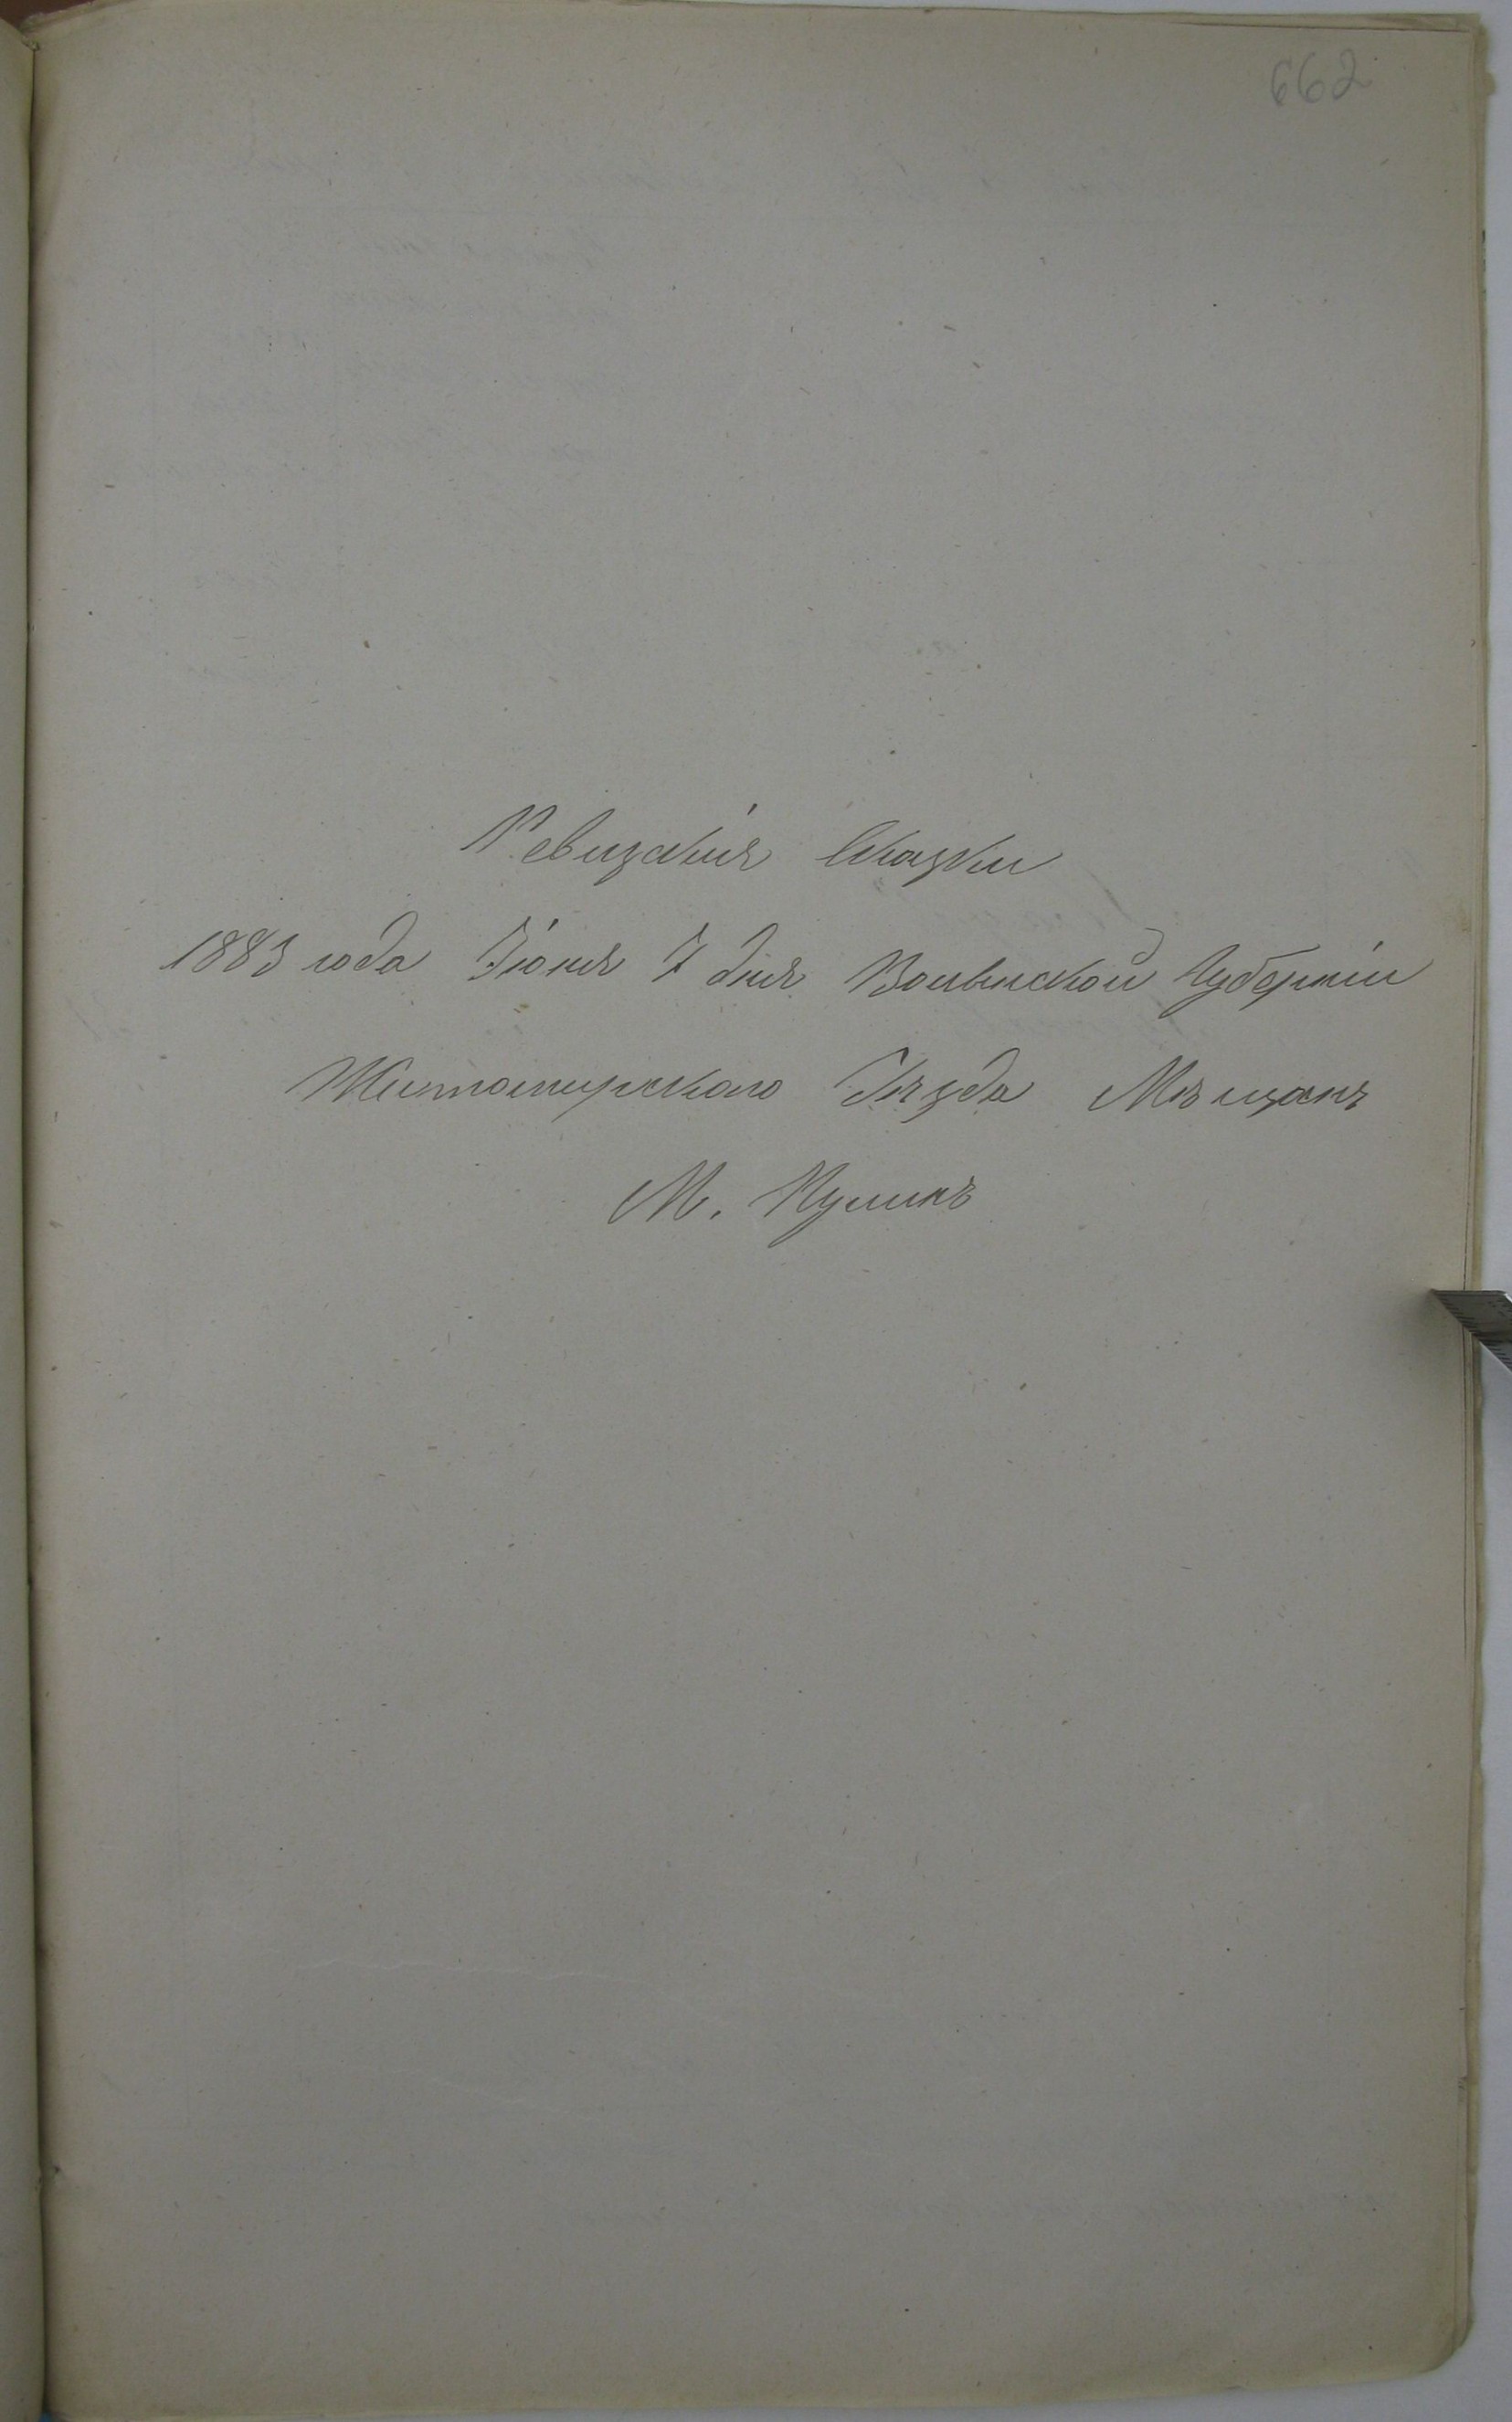 662
Ревизскія Сказки
1883 года Іюня 7 дня Волынской Губерніи
Житомирскаго Уѣзда Мѣщанъ
М. Кулинъ